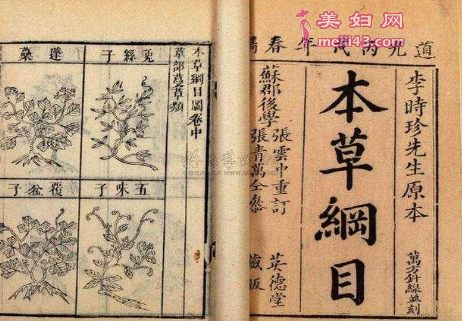 美妇网
道光丙戌年春
李時珍先生原本
萬方針線並刻
本草綱目
蘇郡後學
張雲中重訂
張青萬仝參
英德堂
藏板
本草綱目圖卷中
草部蔓草類
兔絲子
五味子
覆盆子